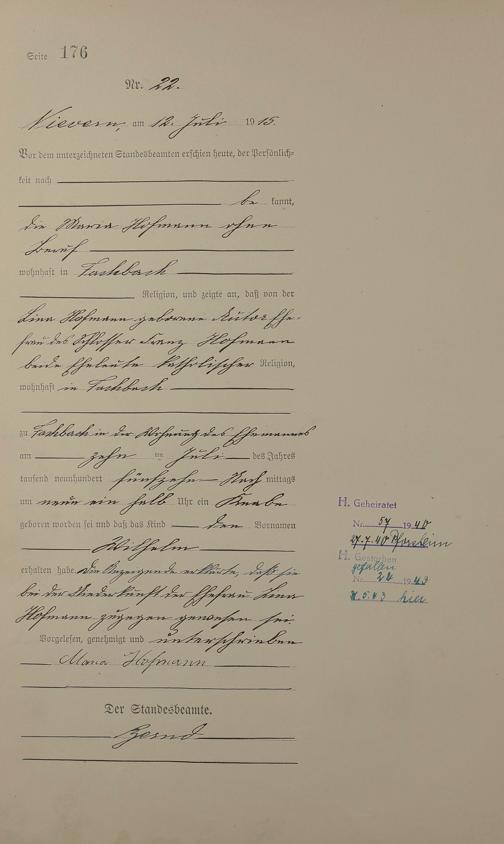 Seite 176
Nr. 22.
Nievern, am 12. Juli 1915.
Vor dem unterzeichneten Standesbeamten erschien heute, der Persönlich-
keit nach
bekannt,
die Maria Hofmann ohne
Beruf
wohnhaft in Fachbach
Religion, und zeigte an, daß von der
Lina Hofmann geborene Ehe-
frau des Schlosser Hofmann
beide Eheleute katholischer Religion,
wohnhaft in Fachbach
zu Fachbach in der Wohnung des Ehemannes
am zehn ten Juli des Jahres
tausend neunhundert fünfzehn Nach mittags
um neun ein halb Uhr ein Knabe
geboren worden sei und daß das Kind den Vornamen
Wilhelm
erhalten habe. Die Anzeigende erklärte, daß sie
bei der Niederkunft der Ehefrau Lina
Hofmann zugegen gewesen sei.
Vorgelesen, genehmigt und unterschrieben
Maria Hofmann
Der Standesbeamte.
H. Geheiratet
Nr. 57 1940
27.7.40 Pforzheim
H. Gestorben
gefallen
Nr. 1943
5.43 hier